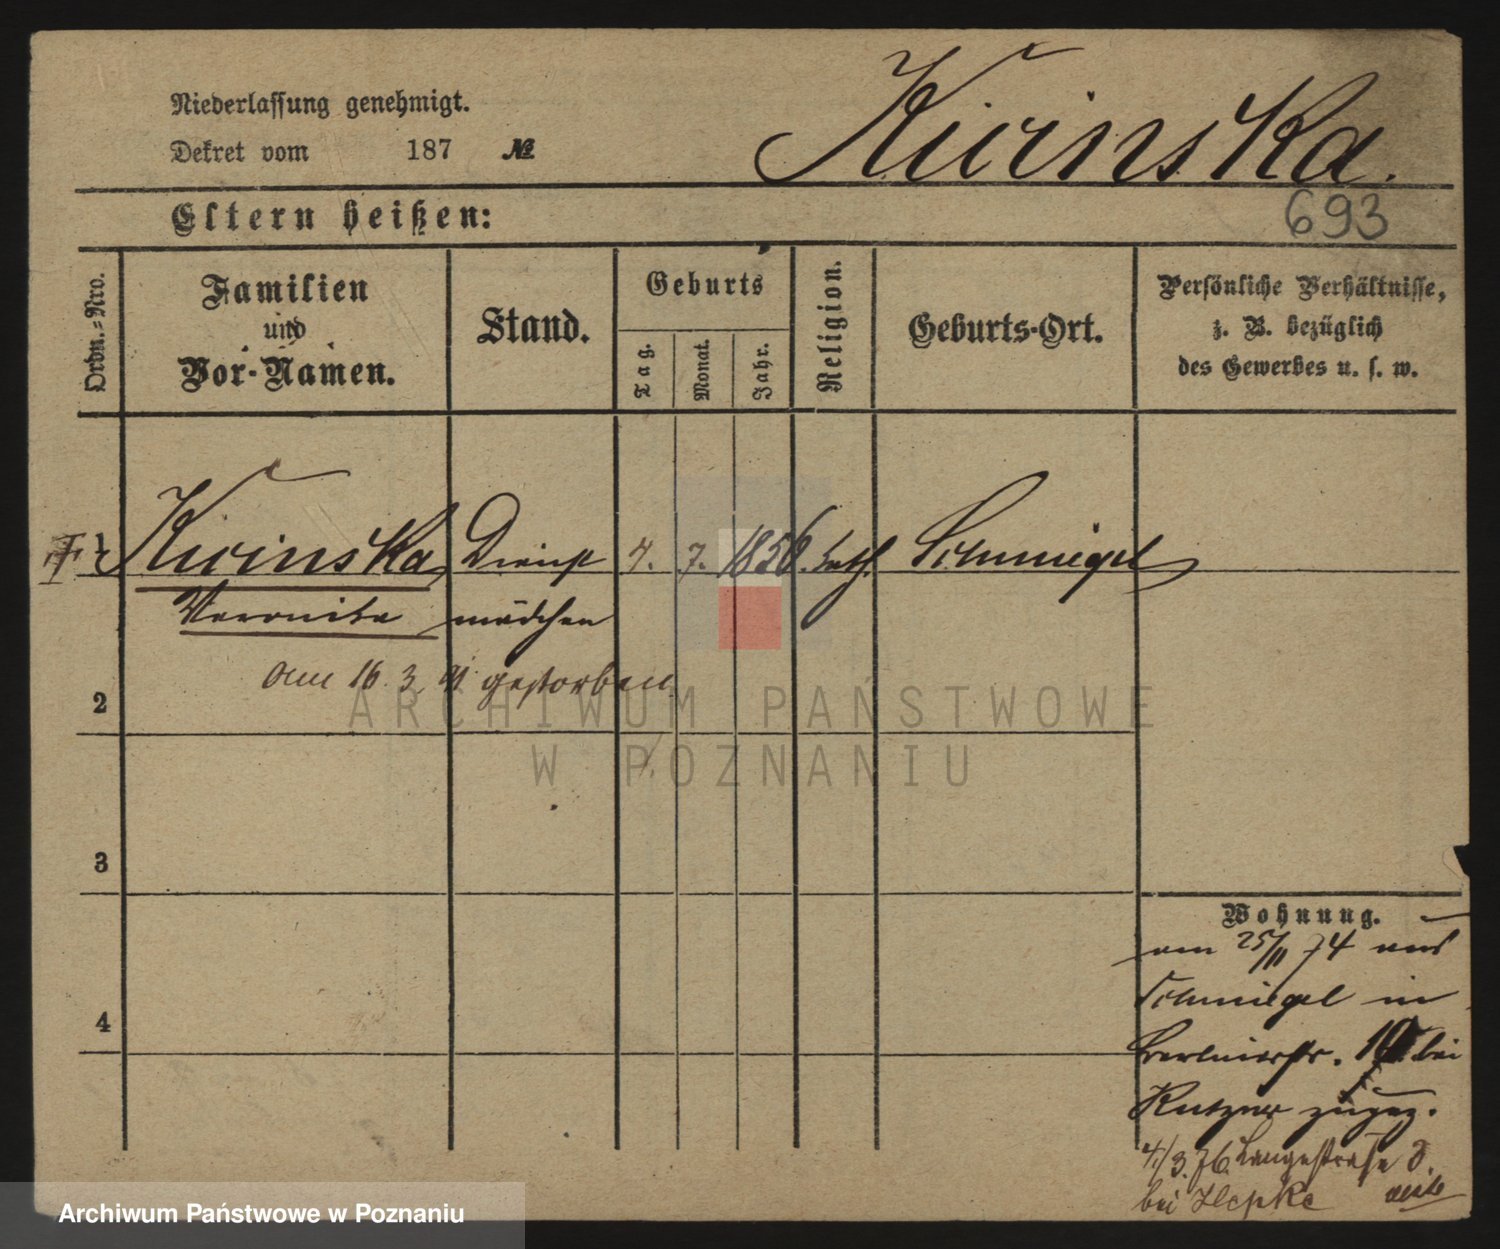 Niederlassung genehmigt.
Dekret vom 187 №
Kicinska.
693
Eltern heißen:
Ordn.=Nro.
Familien
und
Vor-Namen.
Stand.
Geburts
Tag.
Monat.
Jahr.
Religion.
Geburts-Ort.
Persönliche Verhältnisse,
z. B. bezüglich
des Gewerbes u. s. w.
1 Kicinska Dienst 4. 7. 1856. kath. Schmiegel
Veronika mädchen
am 16. 3. 91 gestorben
2
3
4
Wohnung.
am 25/11 74 aus
Schmiegel in
Berlinerstr. bei
Kutzner zugez.
4./3. 76. Langestraße 8.
bei
ARCHIWUM PAŃSTWOWE
W POZNANIU
Archiwum Państwowe w Poznaniu